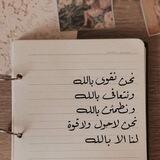 نحن نقوى بالله
ونتعافى بالله
ونطمئن بالله
نحن لاحول ولاقوة
لنا الا بالله